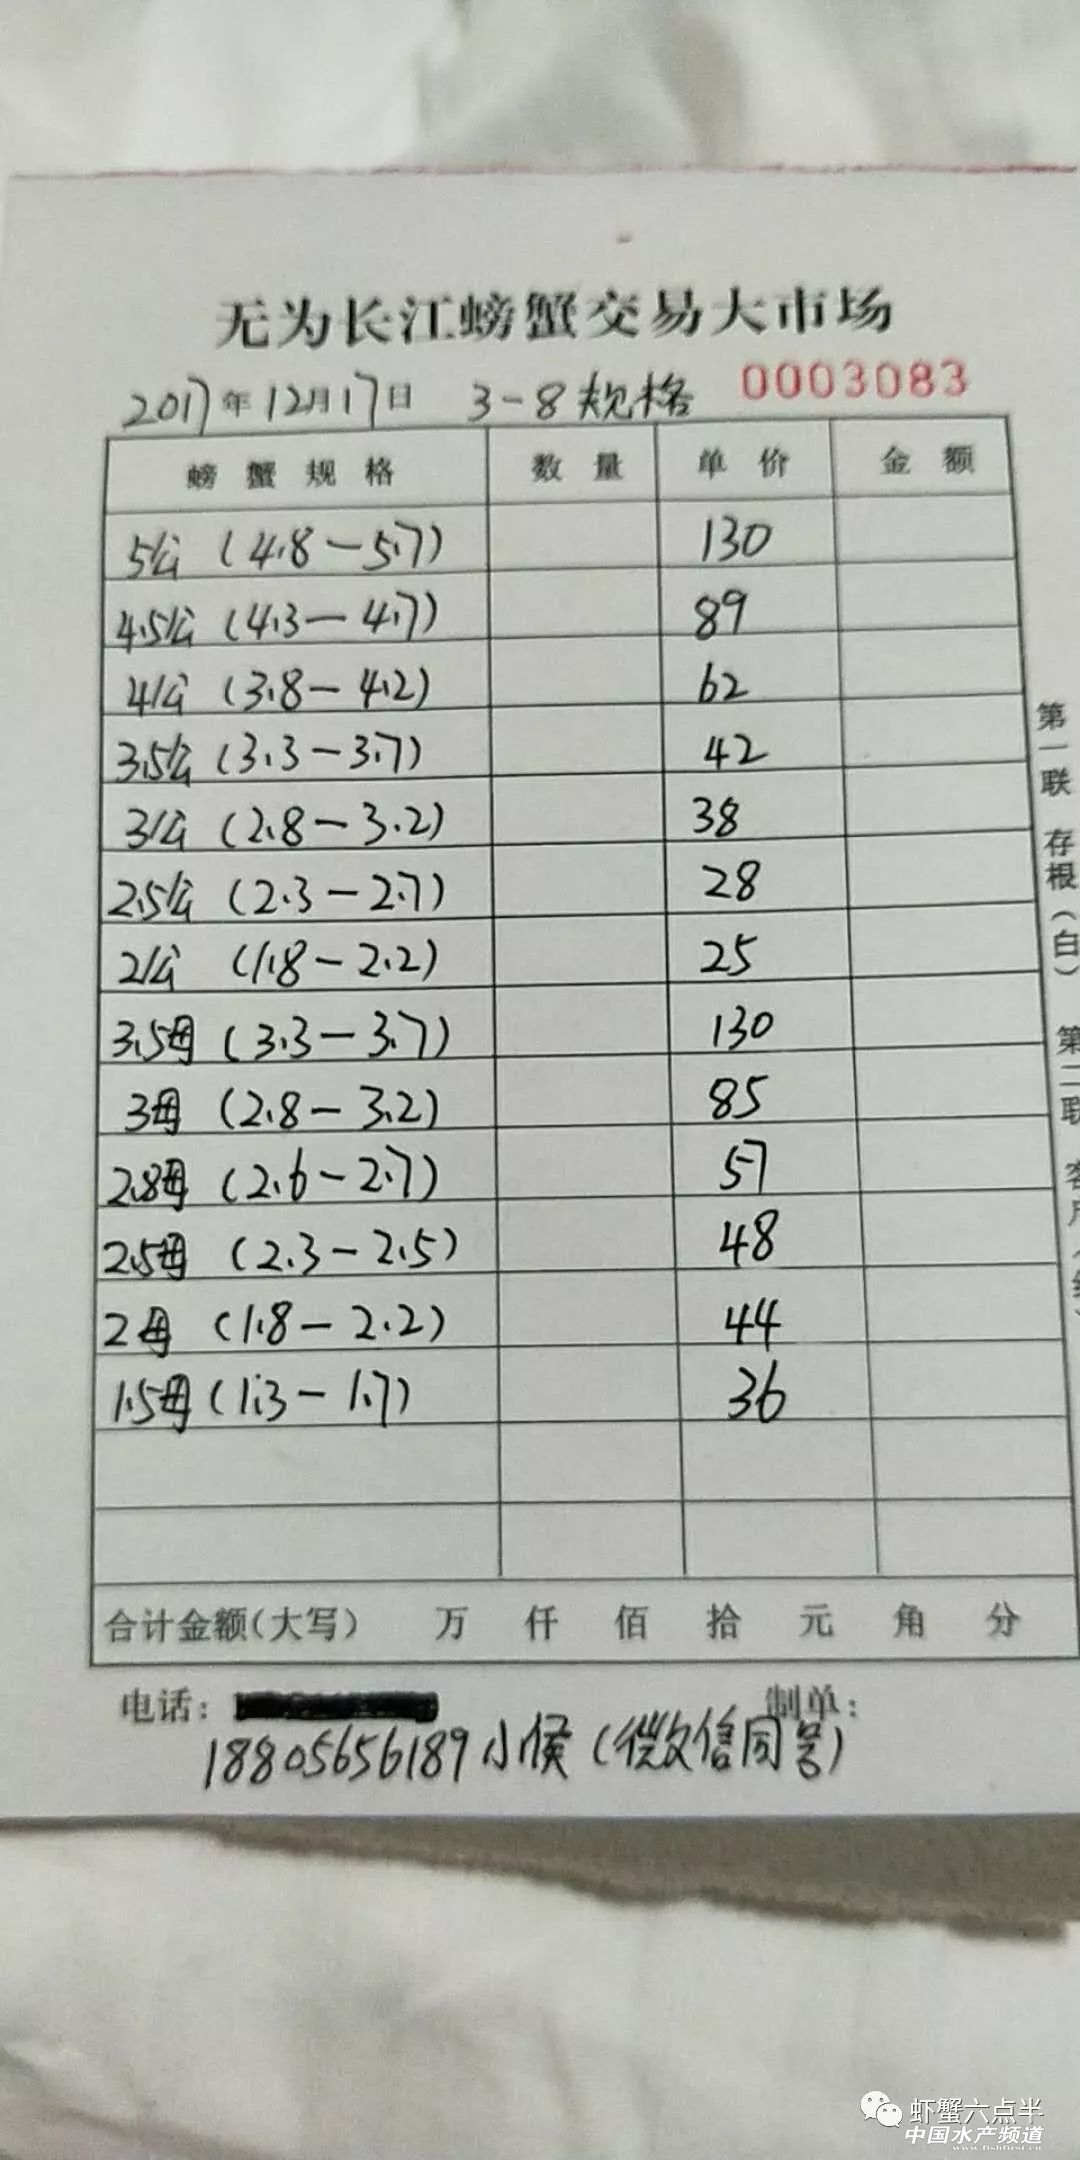 无为长江螃蟹交易大市场
2017年12月17日 3-8规格 0003083
螃蟹规格 数量 单价 金额
5公 (4.8-5.7) 130
4.5公 (4.3-4.7) 89
4公 (3.8-4.2) 62
3.5公 (3.3-3.7) 42
3公 (2.8-3.2) 38
2.5公 (2.3-2.7) 28
2公 (1.8-2.2) 25
3.5母 (3.3-3.7) 130
3母 (2.8-3.2) 85
2.8母 (2.6-2.7) 57
2.5母 (2.3-2.5) 48
2母 (1.8-2.2) 44
1.5母 (1.3-1.7) 36
合计金额(大写) 万 仟 佰 拾 元 角 分
电话: 制单:
18805656189小侯(微信同号)
第一联 存根(白) 第二联
虾蟹六点半
中国水产频道
www.fishfirst.cn